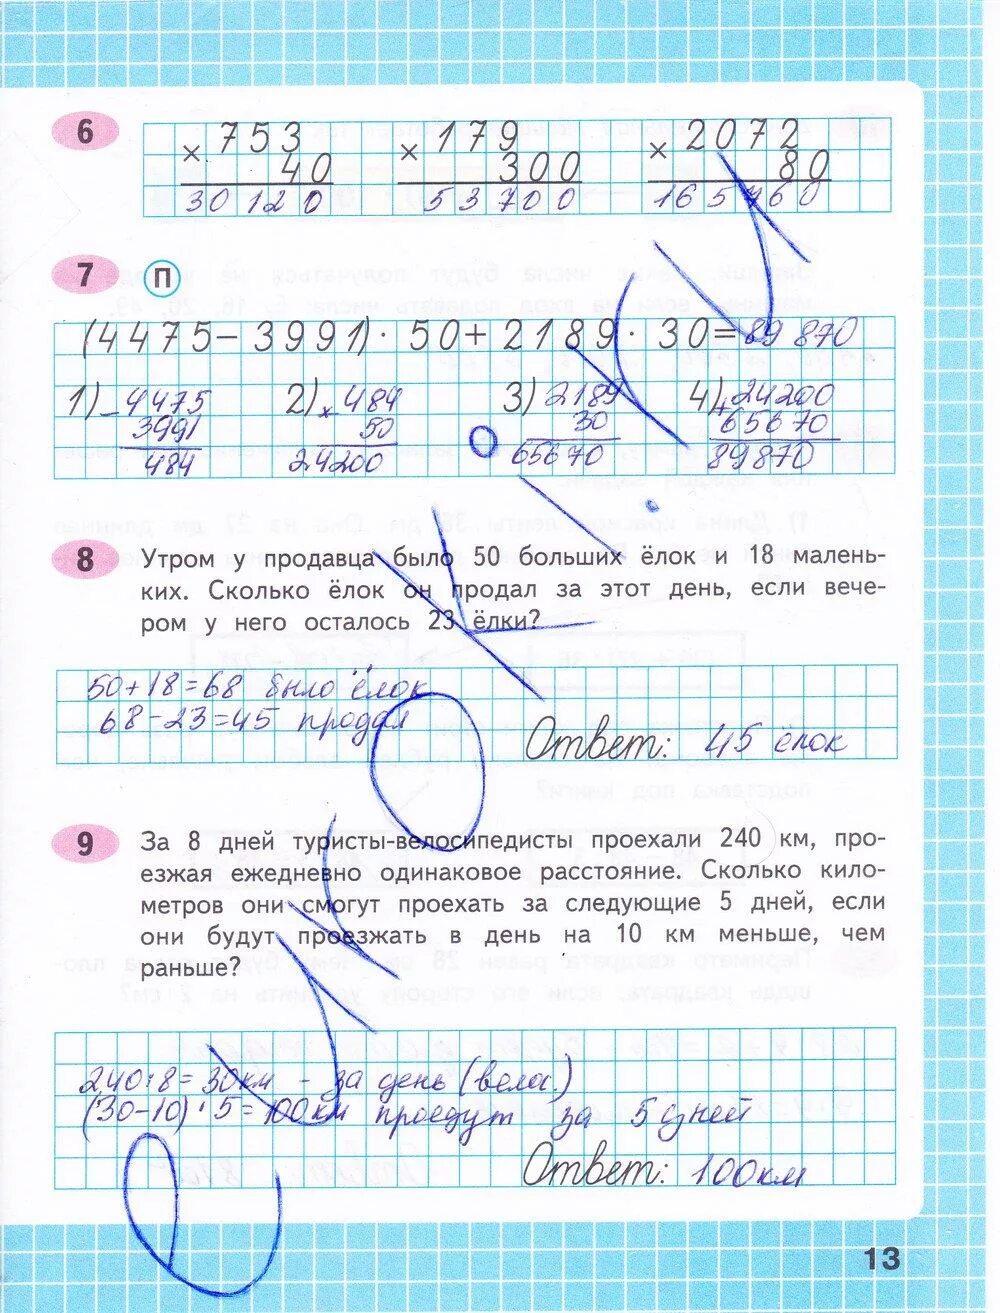 6
× 753 × 179 × 2072
40 300 80
30120 53700 165760
7 П
(4475 − 3991) · 50 + 2189 · 30 = 89 870
1) − 4475 2) × 484 3) 2189 4) + 24200
3991 50 30 65670
484 24200 65670 89870
8 Утром у продавца было 50 больших ёлок и 18 малень-
ких. Сколько ёлок он продал за этот день, если вече-
ром у него осталось 23 ёлки?
50 + 18 = 68 было ёлок
68 − 23 = 45 продал
Ответ: 45 ёлок
9 За 8 дней туристы-велосипедисты проехали 240 км, про-
езжая ежедневно одинаковое расстояние. Сколько кило-
метров они смогут проехать за следующие 5 дней, если
они будут проезжать в день на 10 км меньше, чем
раньше?
240 : 8 = 30км - за день (вела.)
(30 − 10) · 5 = 100км проедут за 5 дней
Ответ: 100км
13